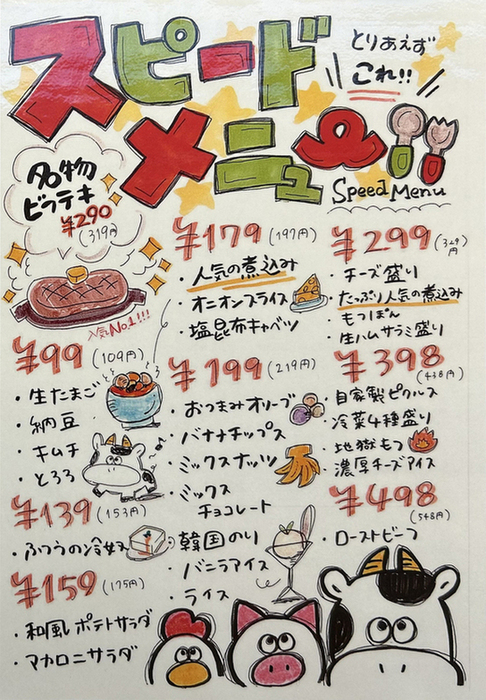 スピード
メニュー!!
とりあえず
これ!!
Speed Menu
名物
ビフテキ
¥290
(319円)
人気No.1!!!
¥99 (109円)
・生たまご
・納豆
・キムチ
・とろろ
¥139 (153円)
・ふつうの冷奴
¥159 (175円)
・和風ポテトサラダ
・マカロニサラダ
¥179 (197円)
・人気の煮込み
・オニオンスライス
・塩昆布キャベツ
¥199 (219円)
・おつまみオリーブ
・バナナチップス
・ミックスナッツ
・ミックス
チョコレート
・韓国のり
・バニラアイス
・ライス
¥299 (329円)
・チーズ盛り
・たっぷり人気の煮込み
・もつぽん
・生ハムサラミ盛り
¥398 (438円)
・自家製ピクルス
・冷菜4種盛り
・地獄もつ
・濃厚チーズアイス
¥498 (548円)
・ローストビーフ